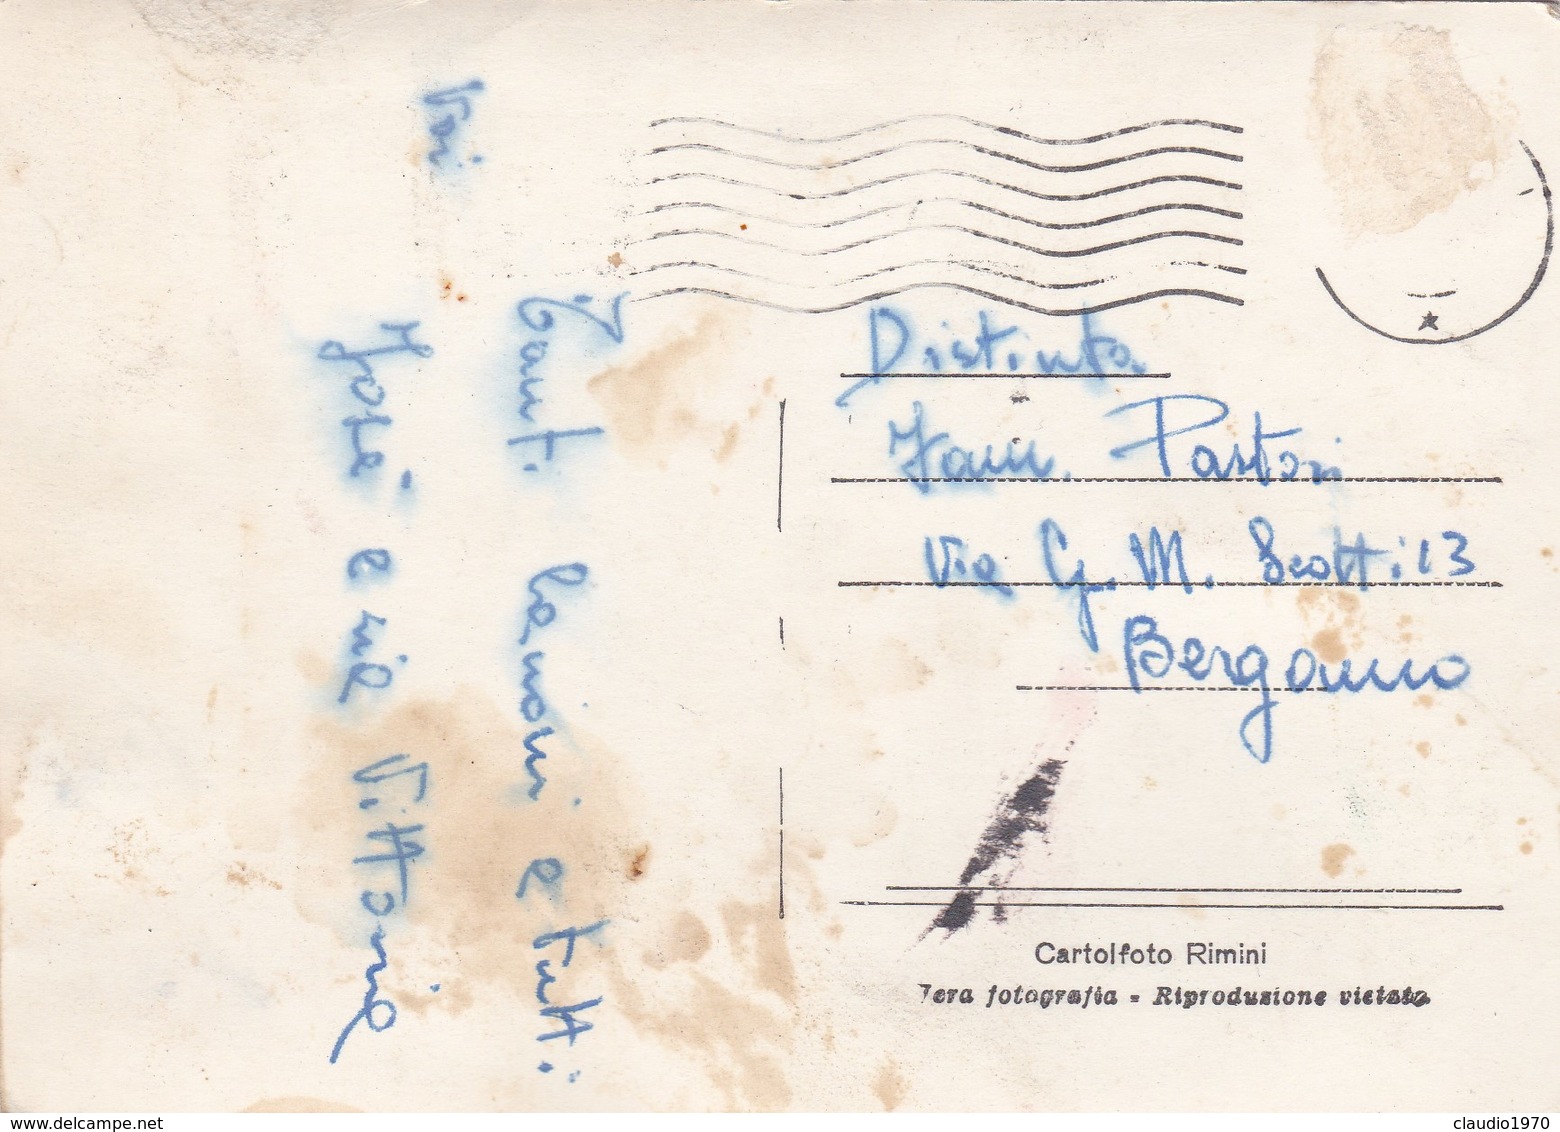 Tanti bacioni a tutti
Voi
José e zie Vittorie
Distinta
Fam. Pastori
Via G. M. Scotti 13
Bergamo
Cartolfoto Rimini
Vera fotografia - Riproduzione vietata
delcampe.net
claudio1970